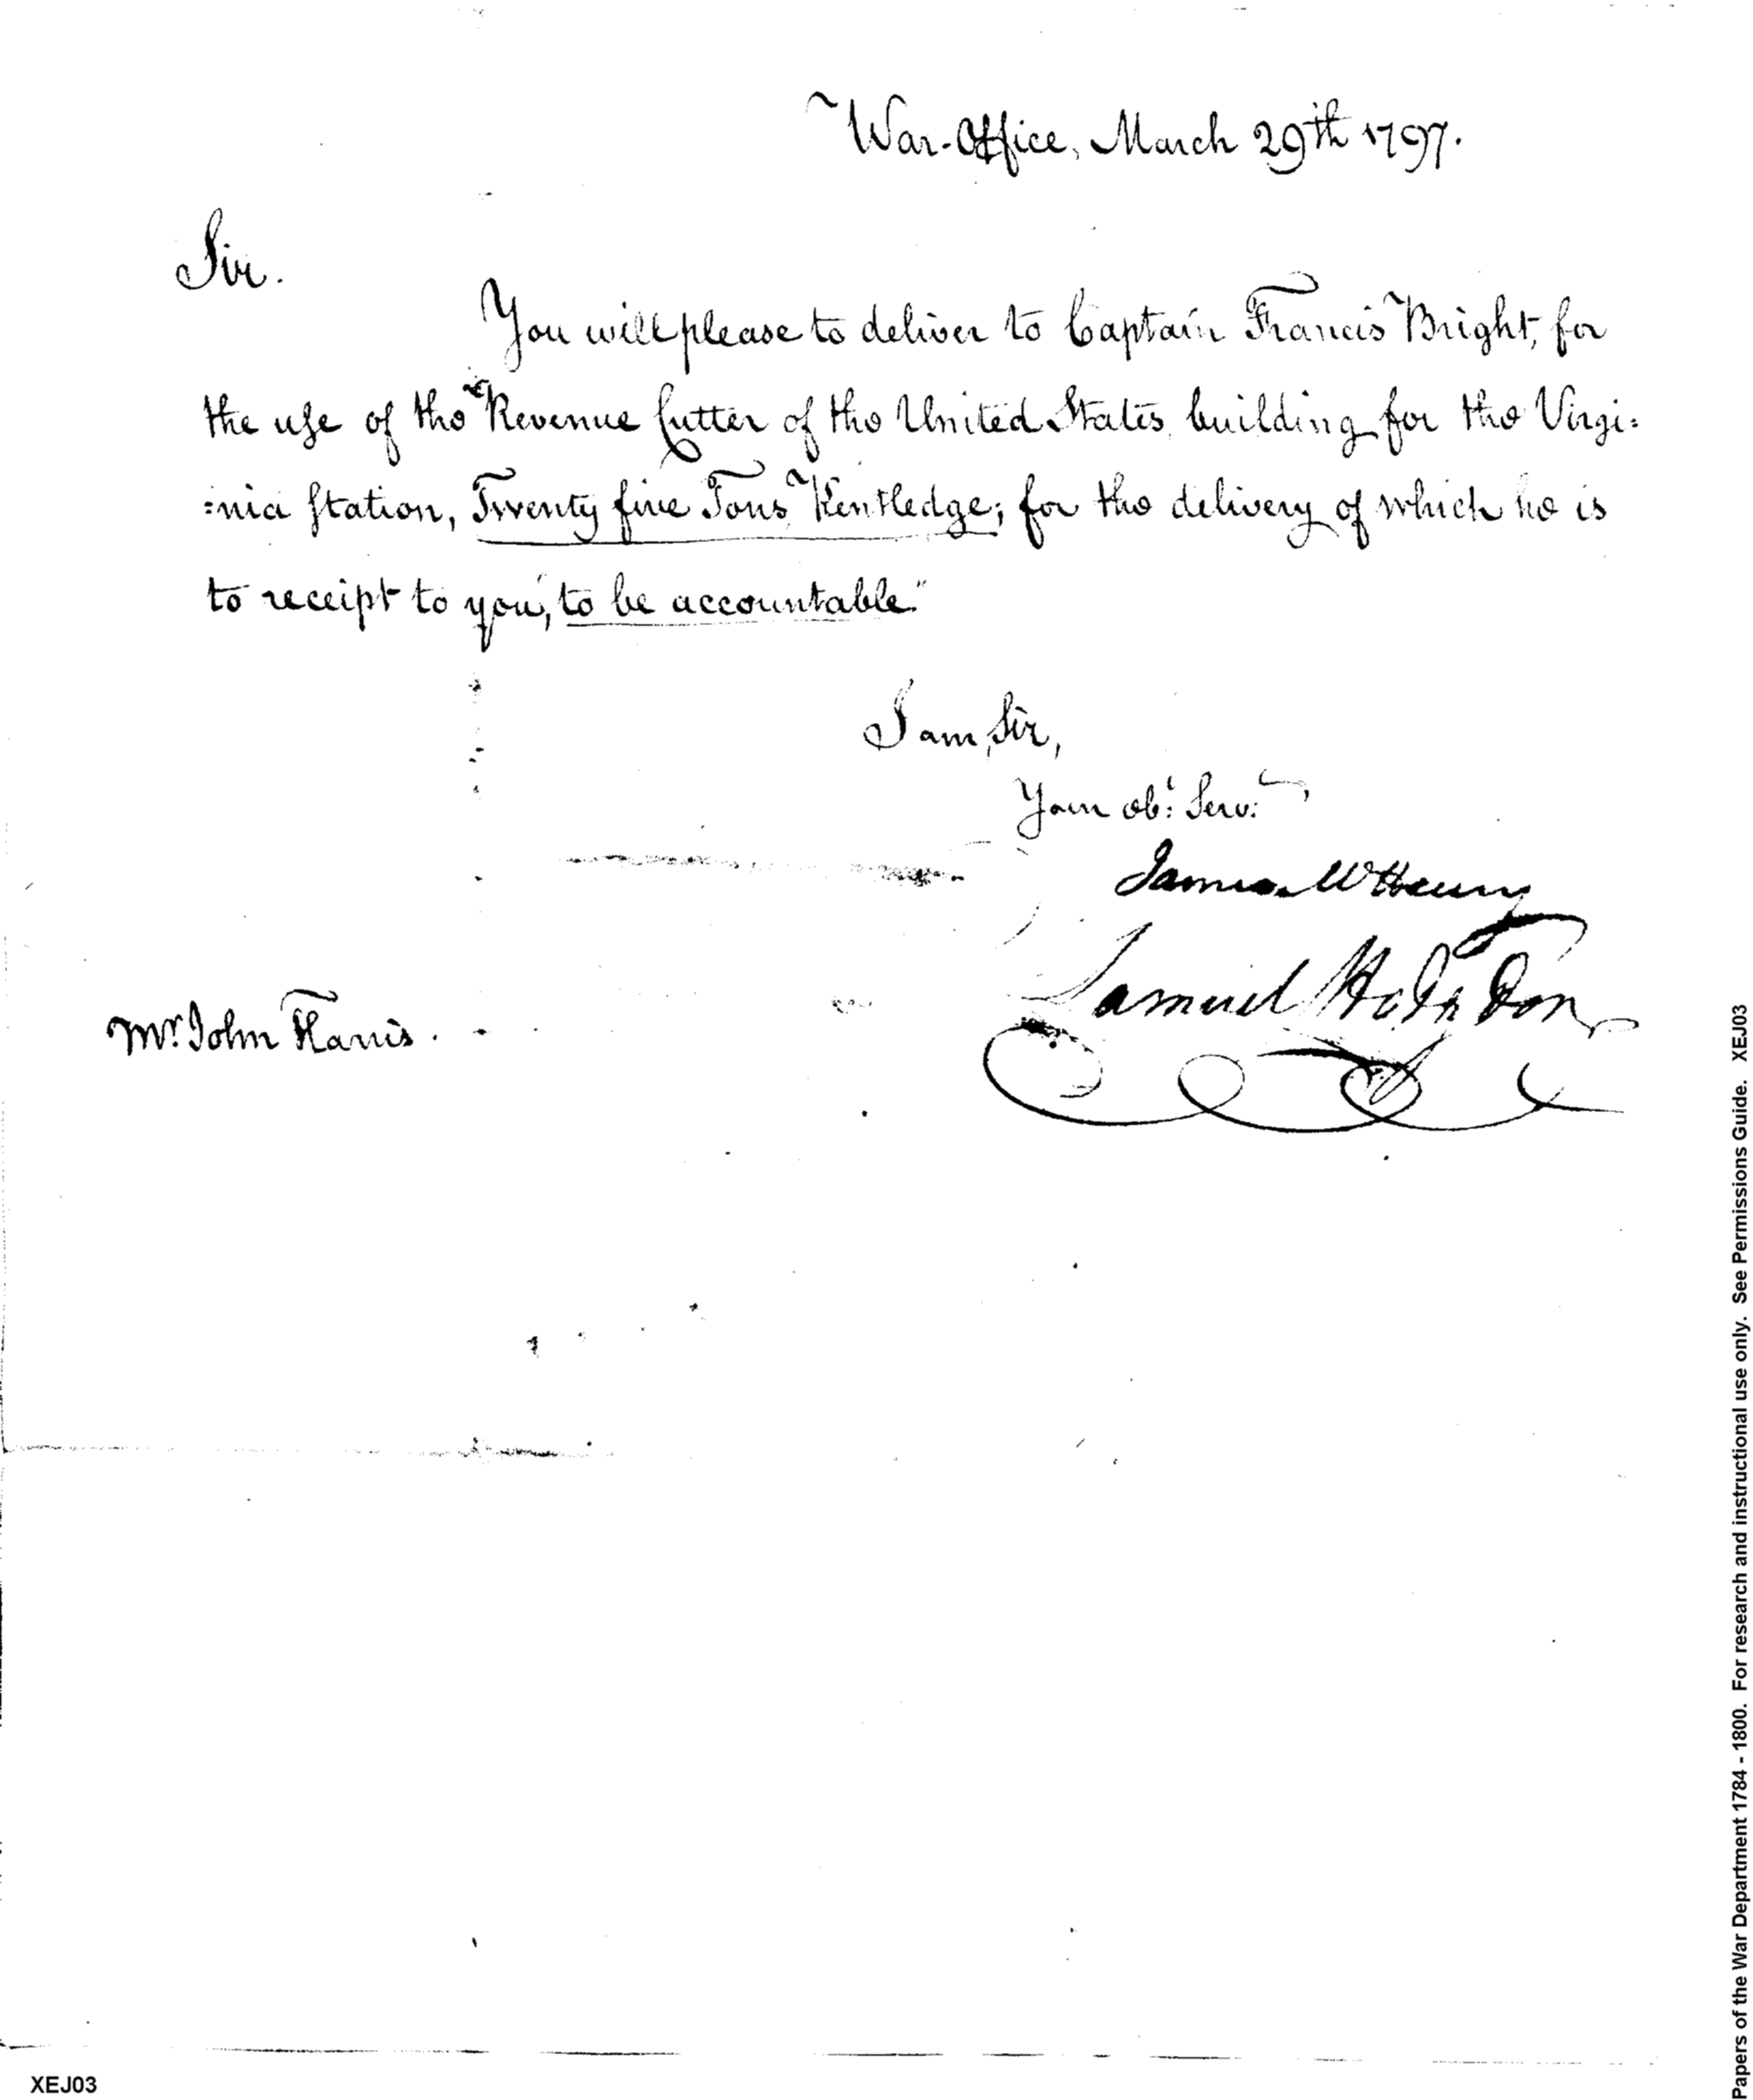 War-Office, March 29th 1797.
Sir.
You will please to deliver to Captain Francis Bright, for
the use of the Revenue Cutter of the United States building for the Virgi=
=nia Station, Twenty five Tons Kentledge; for the delivery of which he is
to receipt to you, "to be accountable."
I am, Sir,
Your obt. Servt.
James McHenry
Samuel Hodgdon
Mr. John Harris.
Papers of the War Department 1784 - 1800. For research and instructional use only. See Permissions Guide. XEJ03
XEJ03